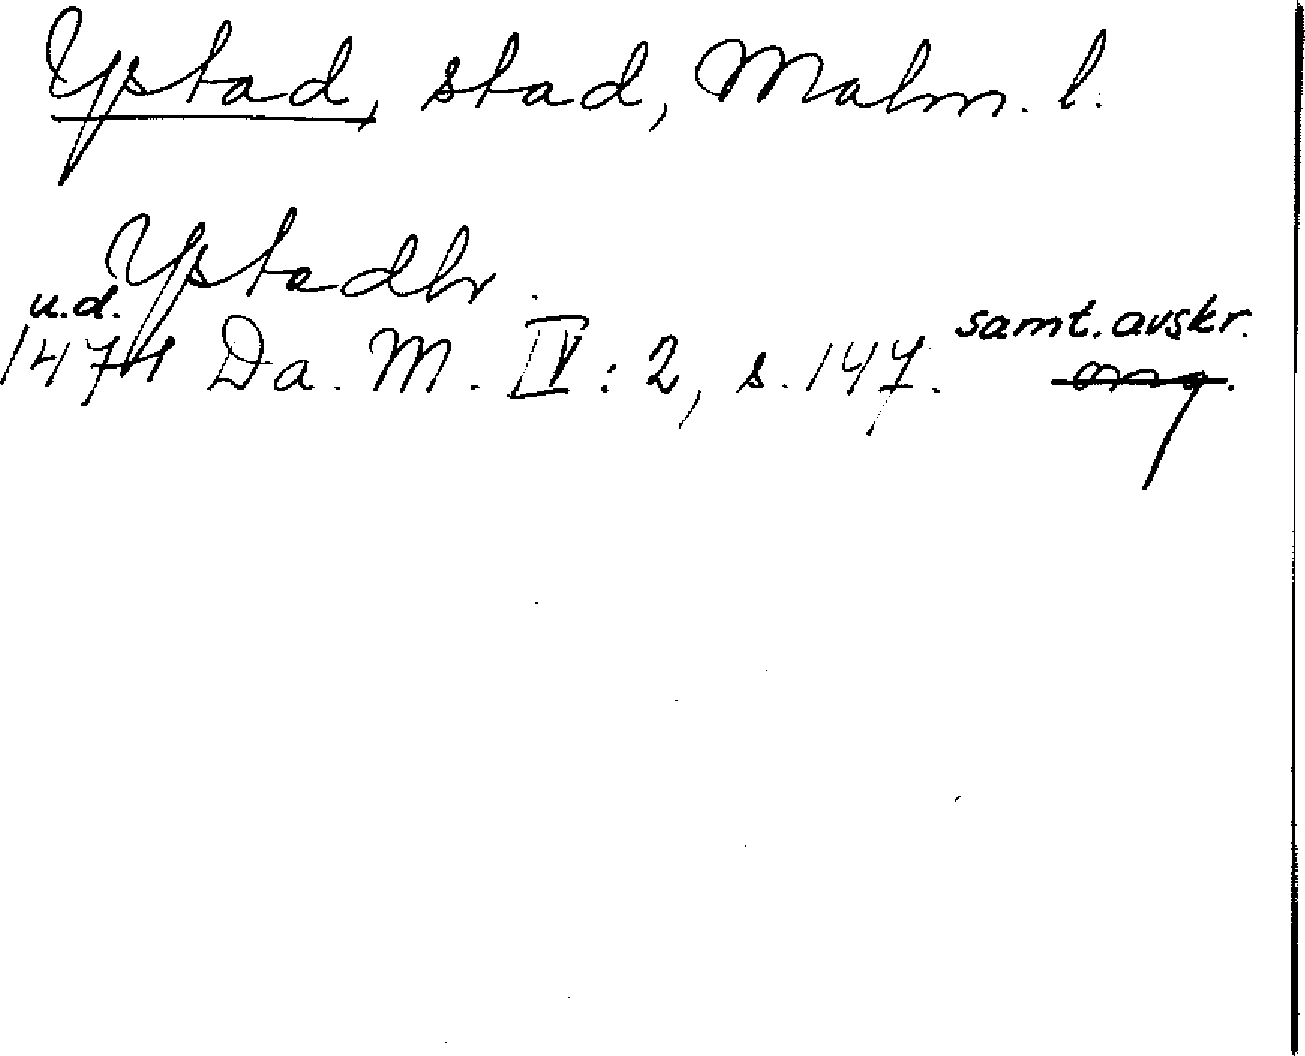 Ystad, stad, Malm. l.
Ystadhr.
u.d.
1474 Da. M. IV: 2, s. 147. samt. avskr.